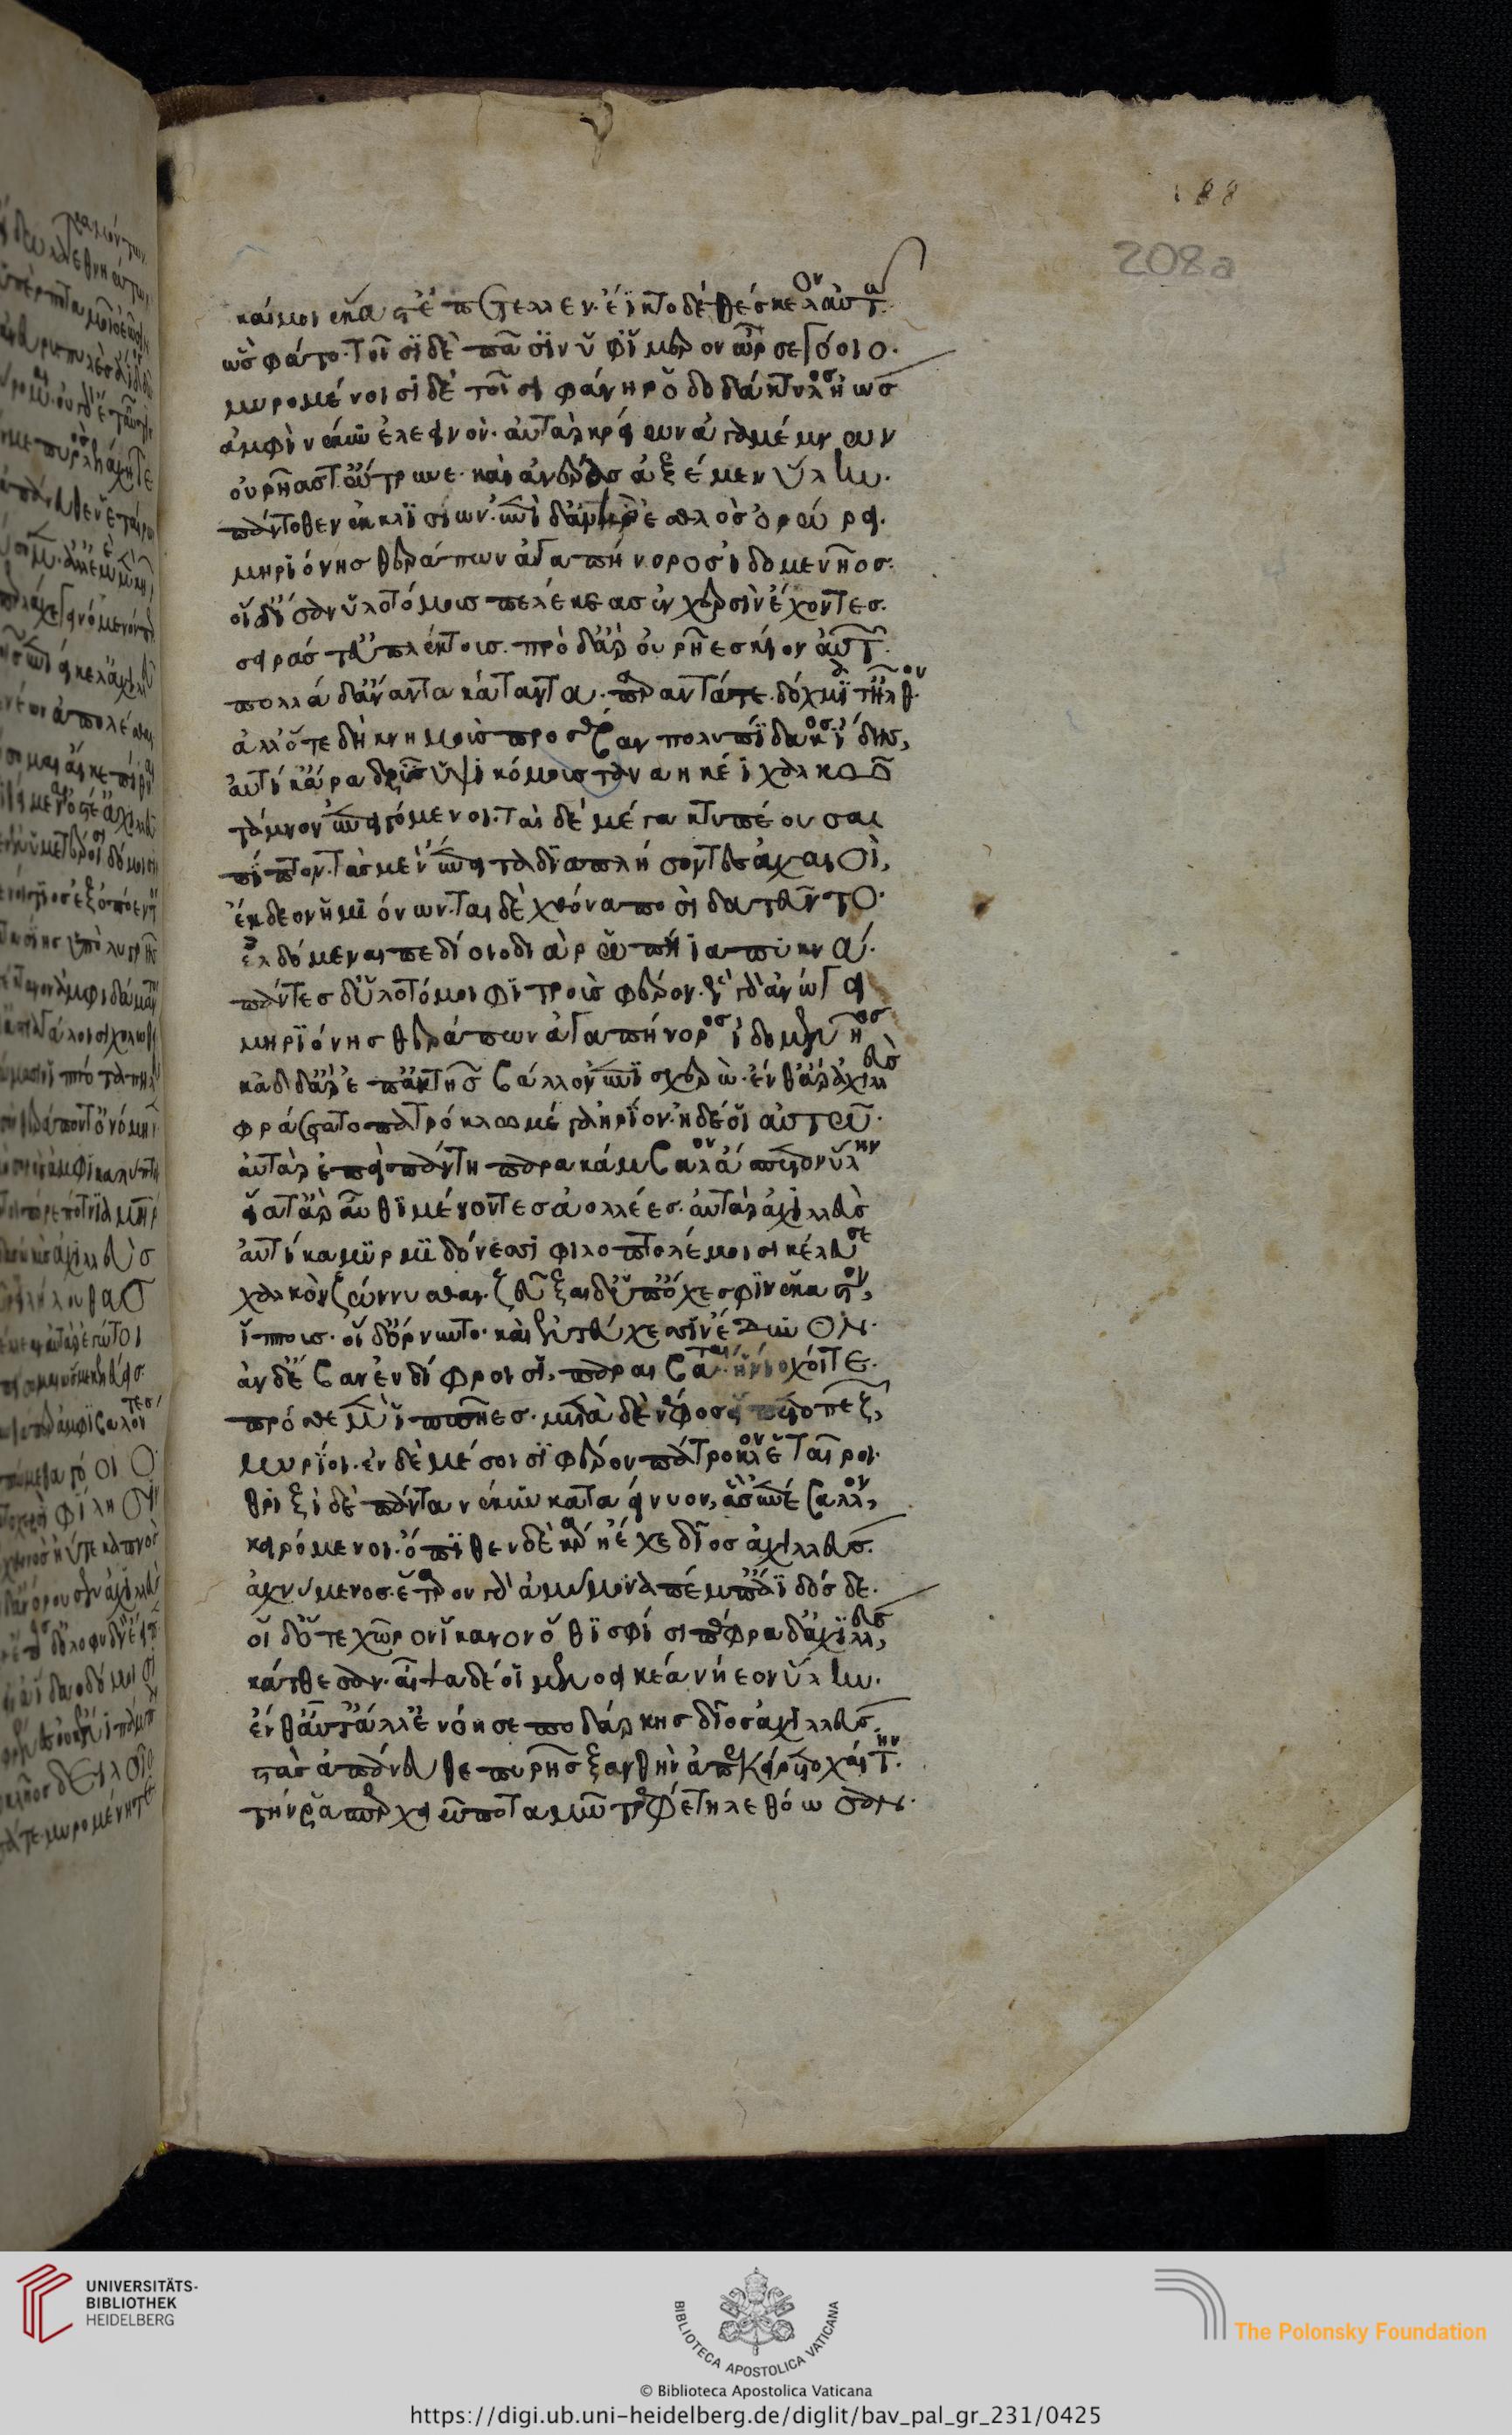 καί μοι ἕκαστ' ἐπέτελλεν· ἔϊκτο δὲ θέσκελον αὐτῶ.
ὣς φάτο· τοῖσι δὲ πᾶσιν ὑφ' ἵμερον ὦρσε γόοιο·
μυρομένοισι δὲ τοῖσι φάνη ῥοδοδάκτυλος ἠὼς
ἀμφὶ νέκυν ἐλεεινόν· αὐτὰρ κρείων ἀγαμέμνων
οὐρῆας τ' ὤτρυνε· καὶ ἀνέρας ἀξέμεν ὕλην.
πάντοθεν ἐκ κλισιῶν· ἐπὶ δ' ἀνὴρ ἐσθλὸς ὀρώρει.
μηριόνης θεράπων ἀγαπήνορος ἰδομενῆος.
οἱ δ' ἴσαν ὑλοτόμους πελέκεας ἐν χερσὶν ἔχοντες.
σειράς τ' εὐπλέκτους. πρὸ δ' ἄρ' οὐρῆες κίον αὐτῶν.
πολλὰ δ' ἄναντα κάταντα· πάραντά τε· δόχμιά τ' ἦλθον.
ἀλλ' ὅτε δὴ κνημοὺς προσέβαν πολυπίδακος ἴδης,
αὐτίκ' ἄρα δρῦς ὑψικόμους ταναηκέϊ χαλκῶ
τάμνον ἐπειγόμενοι. ταὶ δὲ μέγα κτυπέουσαι
πίπτον. τὰς μὲν ἔπειτα διαπλήσοντες ἀχαιοὶ,
ἔκδεον ἡμιόνων. ταὶ δὲ χθόνα ποσὶ δατεῦντο·
ἐλδόμεναι πεδίοιο διὰ ῥωπήϊα πυκνά.
πάντες δ' ὑλοτόμοι φιτροὺς φέρον. ὣς γὰρ ἀνώγει
μηριόνης θεράπων ἀγαπήνορος ἰδομενῆος
καδδ' ἄρ' ἐπ' ἀκτῆς βάλλον ἐπισχερώ· ἔνθ' ἄρ' ἀχιλλεὺς
φράσσατο πατρόκλω μέγα ἠρίον· ἠδὲ οἷ αὐτῶ.
αὐτὰρ ἐπεὶ πάντη παρακάμβαλον ἄσπετον ὕλην
εἵατ' ἄρ' αὖθι μένοντες ἀολλέες. αὐτὰρ ἀχιλλεὺς
αὐτίκα μυρμιδόνεσσι φιλοπτολέμοισι κέλευσε
χαλκὸν ζώννυσθαι. ζεῦξαι δ' ὑπ' ὄχεσφιν ἕκαστον,
ἵππους. οἱ δ' ὄρνυντο· καὶ ἐν τεύχεσσιν ἔδυνον.
ἂν δ' ἔβαν ἐν δίφροισι, παραιβάται ἡνίοχοί τε.
πρόσθε μὲν ἱππῆες. μετὰ δὲ νέφος εἵπετο πεζῶν,
μυρίοι. ἐν δὲ μέσοισι φέρον πάτροκλον ἑταῖροι.
θριξὶ δὲ πάντα νέκυν καταείνυον, ἃς ἐπέβαλλον,
κειρόμενοι. ὄπιθεν δὲ κάρη ἔχε δῖος ἀχιλλεύς.
ἀχνύμενος. ἕταρον γὰρ ἀμύμονα πέμπ' ἄϊδόσδε.
οἱ δ' ὅτε χῶρον ἵκανον ὅθι σφίσι πέφραδ' ἀχιλλεὺς,
κάτθεσαν. αἶψα δέ οἱ μενοεικέα νήεον ὕλην.
ἔνθ' αὖτ' ἄλλ' ἐνόησε ποδάρκης δῖος ἀχιλλεύς.
στὰς ἀπάνευθε πυρῆς ξανθὴν ἀπεκείρατο χαίτην.
τήν ῥα σπερχειῶ ποταμῶ τρέφε τηλεθόωσαν.
188
208a
UNIVERSITÄTS-
BIBLIOTHEK
HEIDELBERG
BIBLIOTECA APOSTOLICA VATICANA
The Polonsky Foundation
© Biblioteca Apostolica Vaticana
https://digi.ub.uni-heidelberg.de/diglit/bav_pal_gr_231/0425